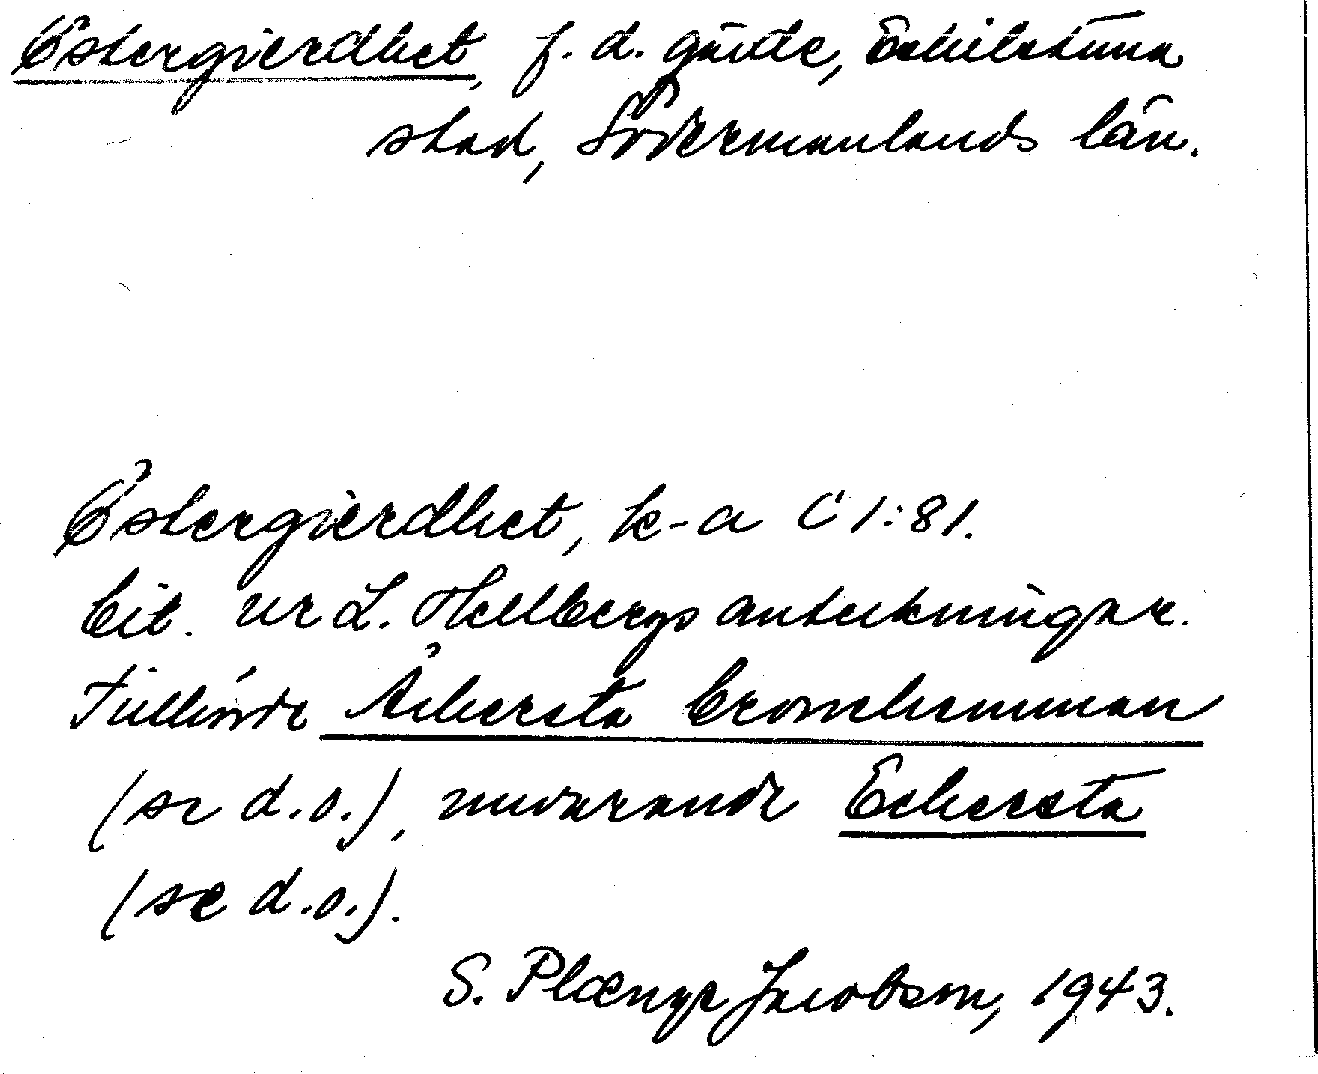 Östergierdhet, f. d. gärde, Eskilstuna
stad, Södermanlands län.
Östergierdhet, k-a C 1:81.
Cit. ur L. Hellbergs anteckningar.
Tillhörde Åkersta Cronehemman
(se d.o.), nuvarande Ekersta
(se d.o.).
S. Plænge Jacobson, 1943.